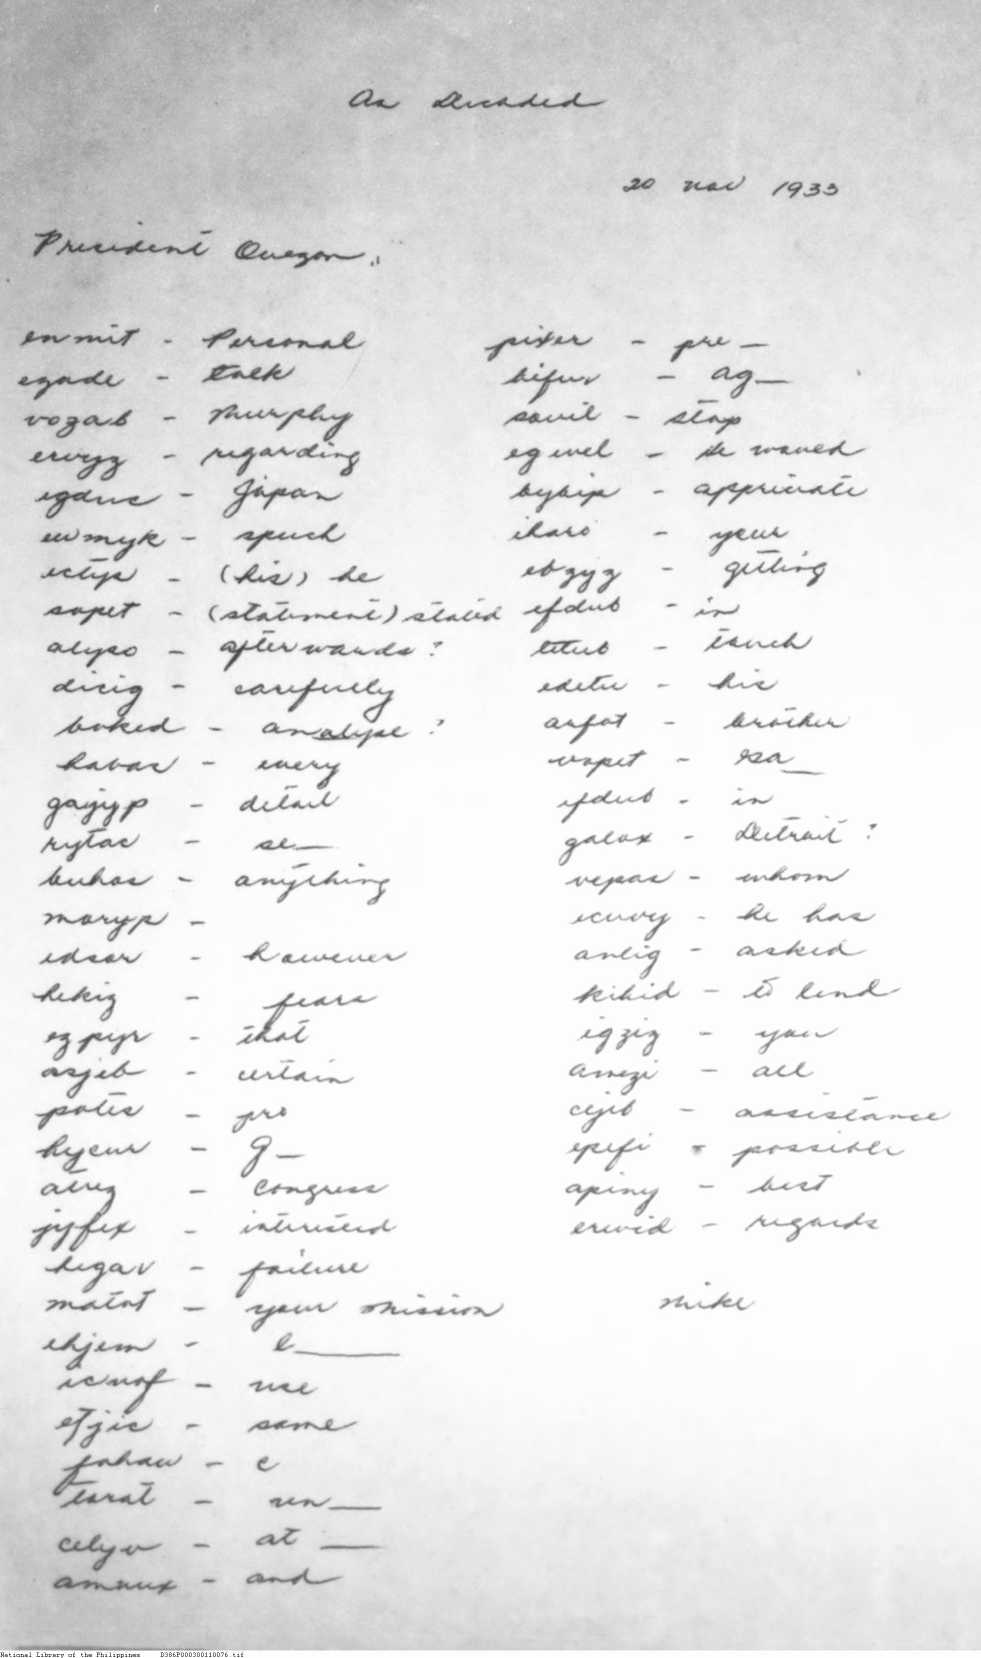 As Decoded
20 Nov 1933
President Quezon:
enmit - Personal
ezade - talk
vozab - Murphy
ervyz - regarding
egduc - Japan
ewmyk - speech
ectyp - (his) he
sapet - (statement) stated
alyso - afterwards?
dicig - carefully
boked - analyse?
havac - every
gajyp - detail
rytac - se__
buhas - anything
moryp -
edsar - however
hekiz - fears
ezpyr - that
asjeb - certain
potis - pro
hycur - g_
atrez - congress
jyfex - interested
hegav - failure
matot - your mission
ehjem - l____
icnof - use
efjic - some
fahaw - c
tarat - un__
celyv - at __
amaux - and
pixer - pre_
bifur - ag_
sovil - stop
egwel - He waved
bybip - appreciate
iharo - your
ebzyz - getting
efdub - in
titub - touch
edetu - his
arfat - brother
vopet - ra__
efdub - in
galox - Detroit?
vepas - whom
ecuvy - he has
anlig - asked
kihid - to lend
igzig - you
amezi - all
cijeb - assistance
epefi - possible
apiny - best
erwid - regards
Mike
National Library of the Philippines D386P000300110076.tif